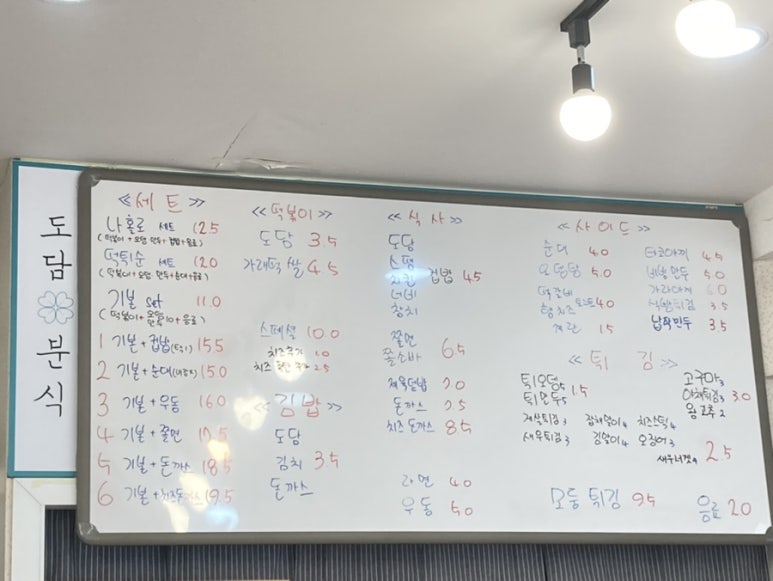 도담 분식
≪세트≫
나홀로 세트 12.5
(떡볶이 + 오뎅 만두 + 컵밥 + 음료)
떡튀순 세트 12.0
(떡볶이 + 오뎅 만두 + 순대 + 음료)
기본 set 11.0
1 기본 + 컵밥 15.5
2 기본 + 순대 15.0
3 기본 + 우동 16.0
4 기본 + 쫄면
5 기본 + 돈까스 18.5
6 기본 + 치즈돈까스 19.5
≪떡볶이≫
도담 3.5
가래떡 쌀 4.5
스페셜 10.0
치즈추가 1.0
치즈 2.5
≪김밥≫
도담
김치 3.5
돈까스
≪식사≫
도담
스팸
치킨 컵밥 4.5
참치
쫄면
쫄소바 6.5
제육덮밥 7.0
돈까스 7.5
치즈돈까스 8.5
라면 4.0
우동 5.0
≪사이드≫
순대 4.0
오뎅탕 5.0
떡갈비
햄치즈 토스트 4.0
계란 1.5
타코야끼 4.5
비빔만두 5.0
가라아게 6.0
식빵튀김 3.5
납작만두 3.5
≪튀김≫
튀오뎅5
튀만두5 1.5
고구마3
야채튀김3 3.0
왕고추2
게살튀김3 잡채말이4 치즈스틱4
새우튀김3 김말이4 오징어3
새우너겟4 2.5
모둠튀김 9.5
음료 2.0